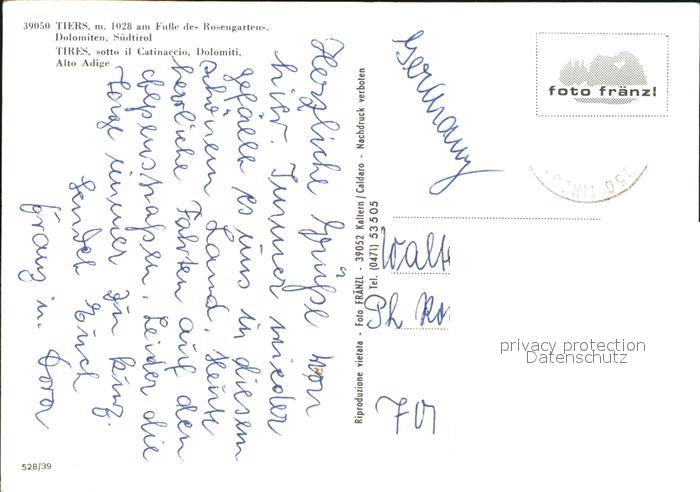 39050 TIERS, m. 1028 am Fuße des Rosengartens.
Dolomiten, Südtirol
TIRES, sotto il Catinaccio, Dolomiti,
Alto Adige
Herzliche Grüße von
hier. Immer wieder
gefällt es uns in diesem
schönem Land. Heute
herrliche Fahrten auf den
Alpenstraßen. Leider die
Tage immer zu kurz.
Senden Euch
Franz u. Dora
528/39
Riproduzione vietata - Foto FRÄNZL - 39052 Kaltern/Caldaro - Nachdruck verboten
Tel. (0471) 53505
Germany
foto fränzl
Walt
Ph
privacy protection
Datenschutz
701